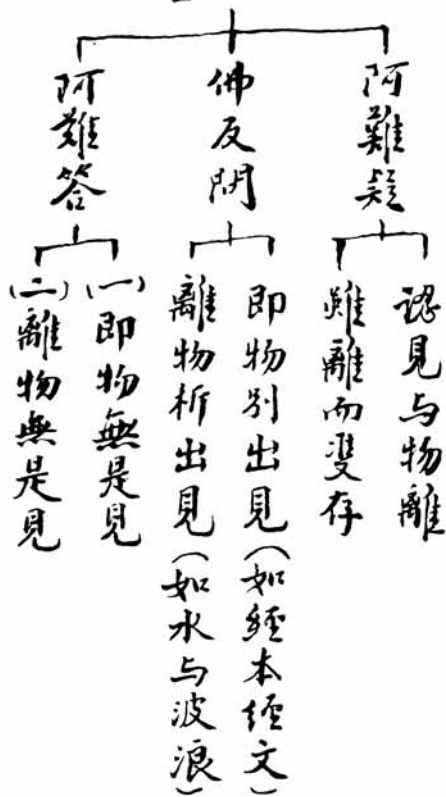 阿難疑
認見与物離
雖離而雙存
佛反問
即物別出見(如經本經文)
離物析出見(如水与波浪)
阿難答
(一)即物無是見
(二)離物無是見